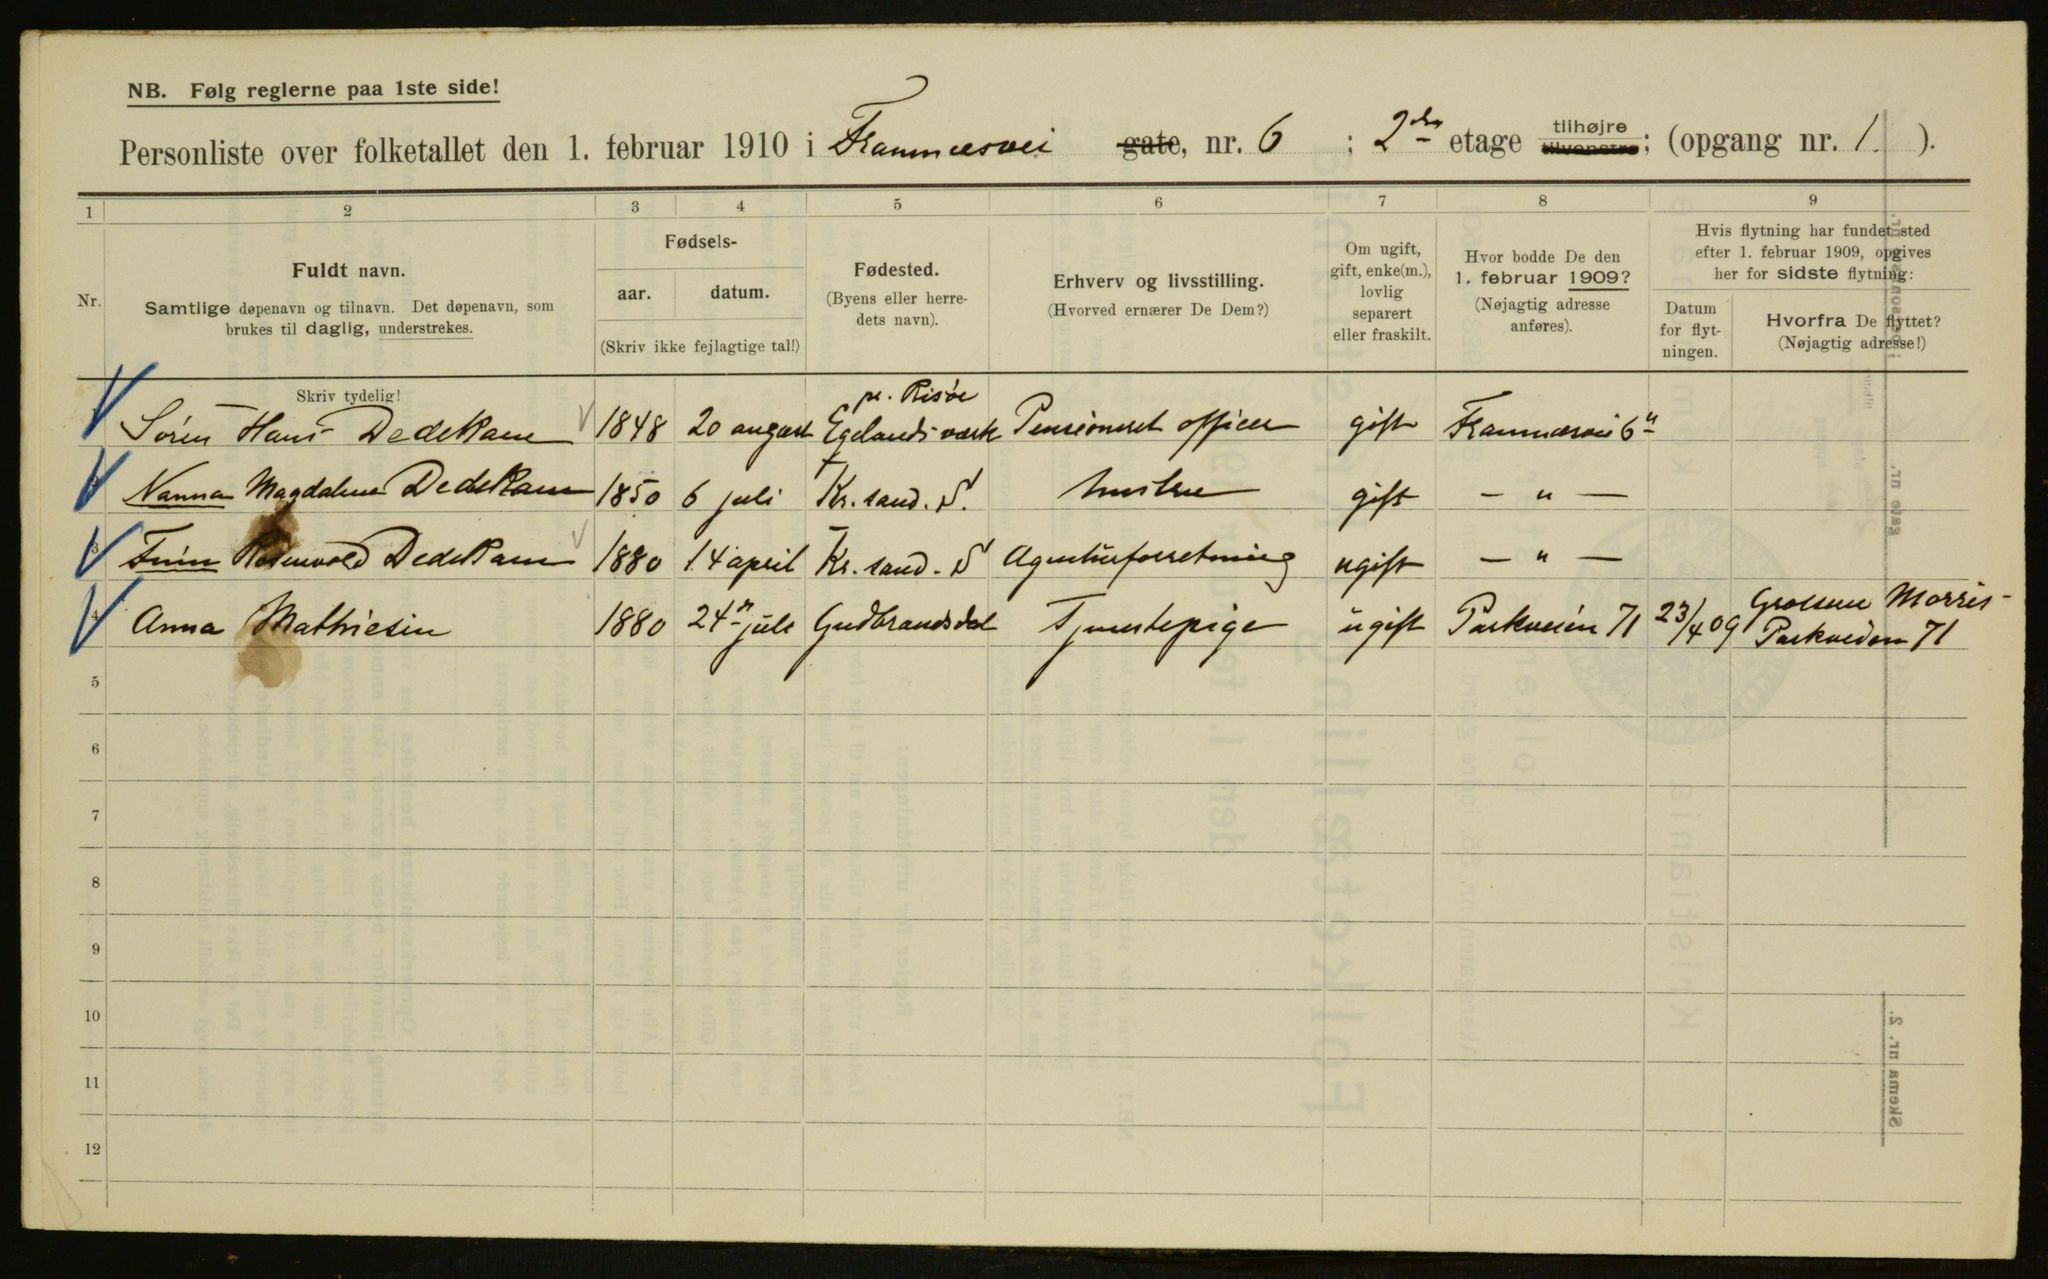 NB. Følg reglerne paa 1ste side!
Personliste over folketallet den 1. februar 1910 i Frammæsvei gate, nr. 6 ; 2den etage tilhøjre tilvenstre; (opgang nr. 1. ).
1 2 3 4 5 6 7 8 9
Nr.
Fuldt navn.
Samtlige døpenavn og tilnavn. Det døpenavn, som
brukes til daglig, understrekes.
Skriv tydelig!
Fødsels-
aar. datum.
(Skriv ikke fejlagtige tal!)
Fødested.
(Byens eller herre-
dets navn).
Erhverv og livsstilling.
(Hvorved ernærer De Dem?)
Om ugift,
gift, enke(m.),
lovlig
separert
eller fraskilt.
Hvor bodde De den
1. februar 1909?
(Nøjagtig adresse
anføres).
Hvis flytning har fundet sted
efter 1. februar 1909, opgives
her for sidste flytning:
Datum
for flyt-
ningen.
Hvorfra De flyttet?
(Nøjagtig adresse!)
pr. Risöe
Sören Hans Dedekam 1848 20 august Egelands værk Pensioneret officer gift Frammæsvei 6
Nanna Magdalene Dedekam 1850 6 juli Kr. sand. S. hustru gift — " —
3 Finn Rosenvold Dedekam 1880 14 april Kr. sand. S Agenturforretning ugift — " —
4 Anna Mathiesen 1880 24 juli Gudbrandsdal Tjenestepige ugift Parkveien 71 23/4 09 Morris-
Parkveien 71
5
6
7
8
9
10
11
12